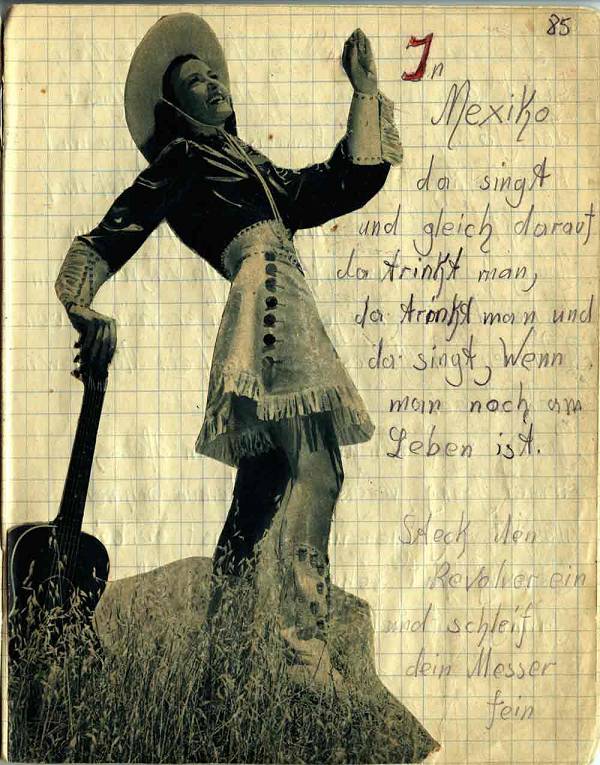 85
In
Mexiko
da singt
und gleich darauf
da trinkt man,
da trinkt man und
da singt, Wenn
man noch am
Leben ist.
Steck den
Revolver ein
und schleif
dein Messer
fein